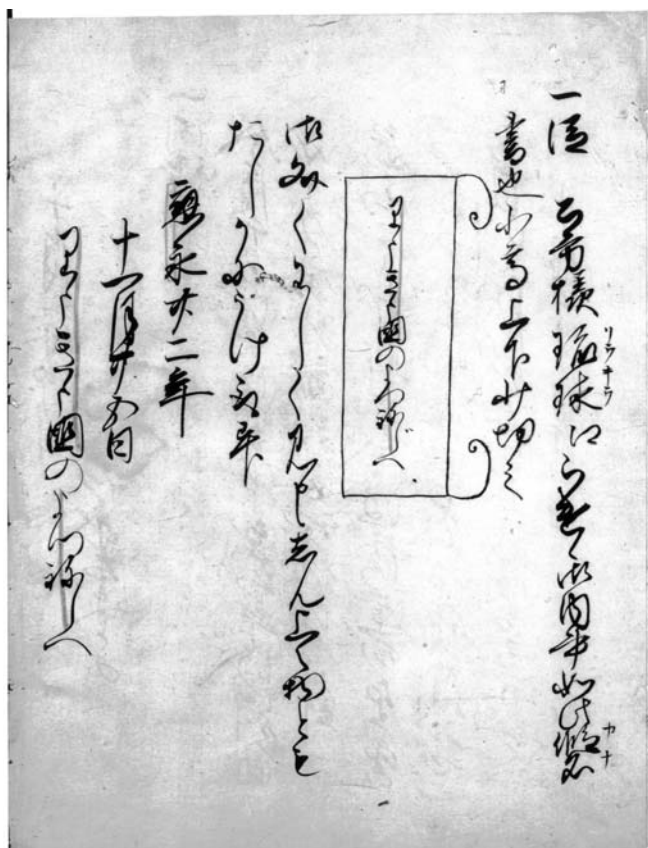 一従　公方様琉球江被遣候御内書如此假名
リウキウ
カナ
書也小高上下少切之
りうきう国のよのぬしへ
御文くわしく見申候しん上の物とも
たしかにうけとり候ぬ
應永廿二年
十一月廿五日
りうきう国のよのぬしへ